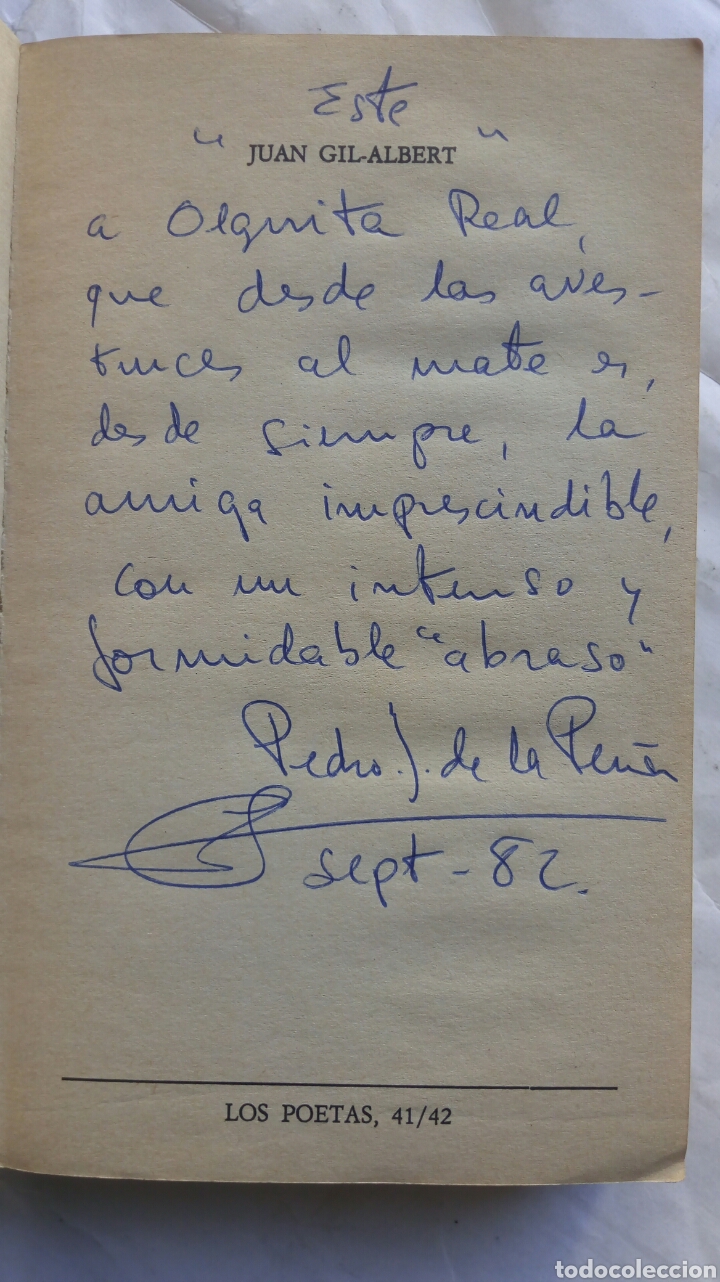 Este
" JUAN GIL-ALBERT "
a Olguita Real,
que desde las aves-
truces al mate es,
desde siempre, la
amiga imprescindible,
con un intenso y
formidable "abraso"
Pedro J. de la Peña
sept - 82.
LOS POETAS, 41/42
todocoleccion